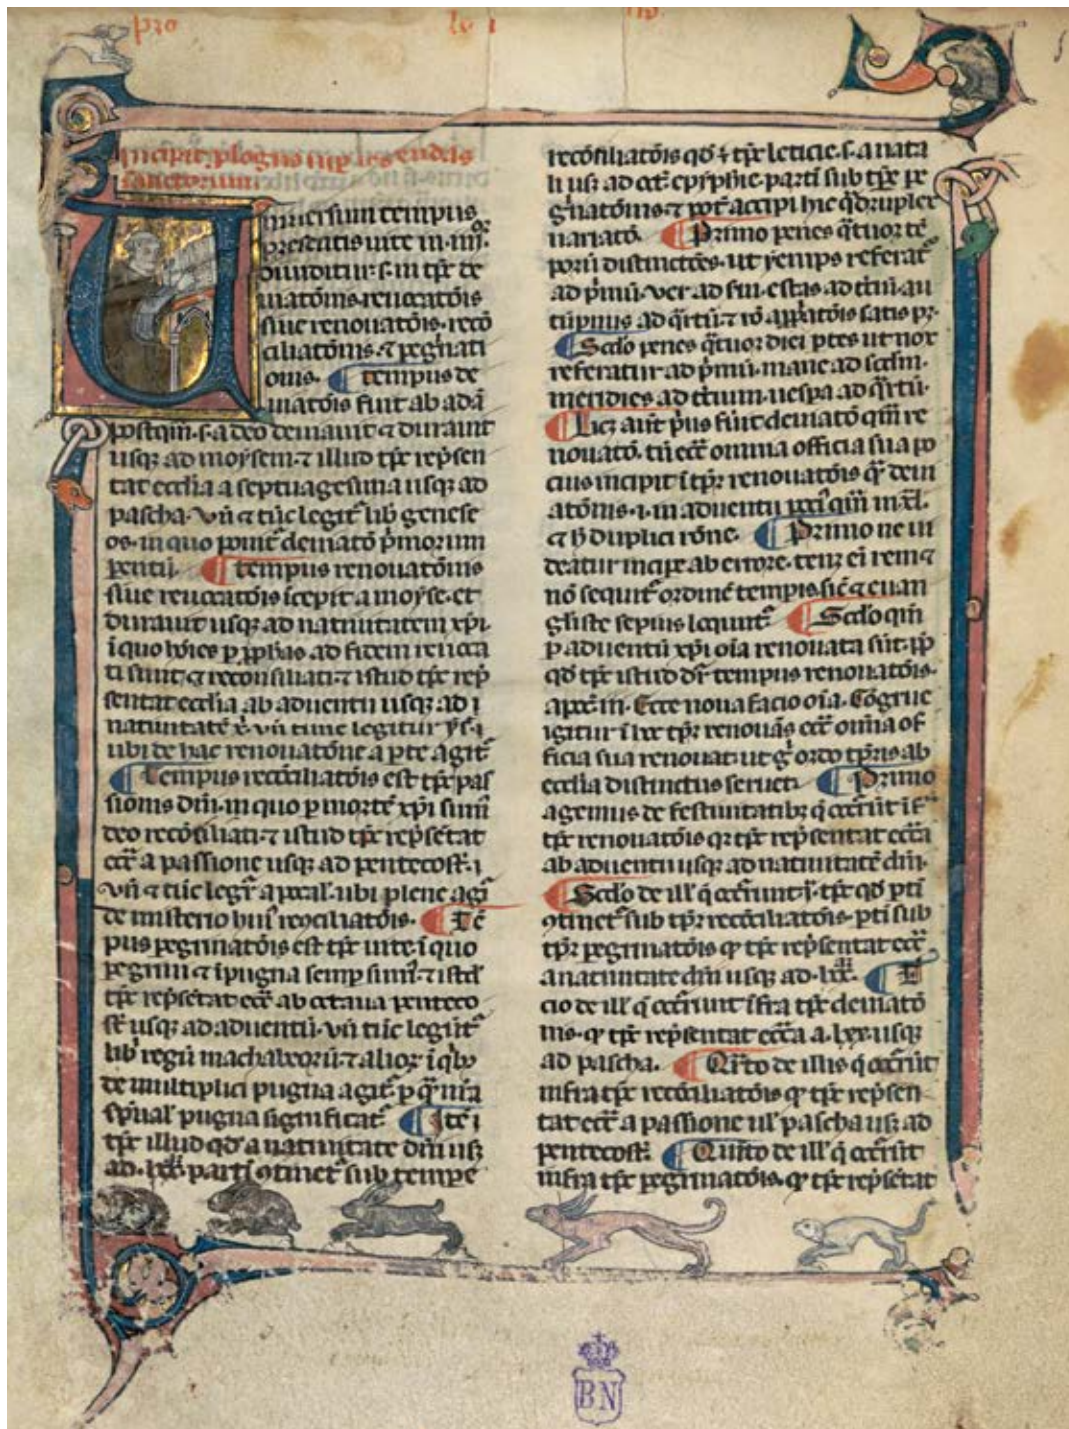 pro lo
Incipit plogus sup legendas
sanctorum
Uniuersum tempus
presentis uite in .iiii.
diuiditur .s. in tp̄r de
uiatōnis. reuocatōis
siue renouatōis. recō
ciliatōnis. ⁊ pegͥnati
onis. ¶ Tempus de
uiatōis fuit ab adā
postqm̄ .s. a deo deuiauit ⁊ durauit
usqꝫ ad moysem. ⁊ illud tp̄r rep̄sen
tat ecclīa a septuagesima usqꝫ ad
pascha. Vn̄ ⁊ tūc legit᷑ lib᷑ genese
os. in quo ponit᷑ deuiatō p̄morum
parentū. ¶ Tempus renouatōnis
siue reuocatōis īcepit a moyse. et
durauit usqꝫ ad natiuitatem xp̄i.
ī quo hōies p̱ ꝓphās ad fidem reuoca
ti sunt ⁊ reconsiliati. ⁊ istud tp̄r rep̄
sentat ecclīa ab aduentu usqꝫ ad
natiuitatē. Vn̄ tunc legitur ys.
ubi de hac renouatōne apte agit᷑
¶ Tempus recōciliatōis est tp̄r pas
sionis dn̄i. in quo p̱ mortē xp̄i sum᷒
deo recōsiliati. ⁊ istud tp̄r rep̄sētat
ecc̄a a passione usqꝫ ad pentecost̄.
Vn̄ ⁊ tūc legit᷑ apocal. ubi plene agit᷑
de misterio hui᷒ recōciliatōis. ¶ Tē
pus pegͥnatōis est tp̄r uite. ī quo
pegͥni ⁊ ī pugna semp̱ sum᷒. ⁊ istud
tp̄r rep̄sētat ecc̄a ab octaua penteco
st̄ usqꝫ ad aduentū. Vn̄ tūc legūt᷑
lib᷑ regū machabeorū ⁊ alioꝝ ī qͥbꝫ
de multiplici pugna agit᷑ p̱ qͣ nr̄a
sp̄ual pugna significat᷑ ¶ Itē
tp̄r illud qd̄ a natiuitate dn̄i usqꝫ
ad .lxx. partī ꝯtinet᷑ sub tempe
recōsiliatōis qd̄ ē tp̄r leticie .s. a nata
li usqꝫ ad oct̄. epyphīe. partī sub tp̄r pe
gͥnatōnis. ⁊ pōt accipi hec qͣdruplex
uariatō. ¶ Primo penes qͣtuor tē
porū distinctōes. ut yemps referat᷑
ad p̄mū. ver ad sm̄. estas ad tc̄iū. au
tūpnus ad qͣrtū. ⁊ rō app̱atōis satis p̄.
¶ Scd̄o penes qͣtuor diei ptes ut nox
referatur ad p̄mū. mane ad scd̄m.
meridies ad tc̄ium. uesp̱a ad qͣrtū.
¶ Licꝫ aut̄ p̄us fuit deuiatō qm̄ re
nouatō. tn̄ ecc̄a omnia officia sua po
cius incipit ī tp̄r renouatōis qͣ deui
atōnis .i. in aduentu
⁊ h̄ duplici rōne. ¶ Primo ne ui
deatur incipe ab errore. tenꝫ ei rem ⁊
nō sequit᷑ ordinē tempis. sic̄ ⁊ euan
gl̄iste sepius locunt᷑. ¶ Scd̄o qm̄
p̱ aduentū xp̄i oīa renouata sūt. ꝓp̱
qd̄ tp̄r istud dr̄ tempus renouatōis.
apoc̄. Ecce noua facio oīa. Cōgrue
igitur ī hoc tp̄r renouatōis ecc̄a omnia of
ficia sua renouat. ut gͦ ordo tp̄ris ab
ecclīa distinctus seruet᷑. ¶ Primo
agemus de festiuitatibꝫ q̄ occurrūt īfra
tp̄r renouatōis qꝫ tp̄r rep̄sentat ecc̄a
ab aduentu usqꝫ ad natiuitatē dn̄i.
¶ Scd̄o de ill̄ q̄ occurrunt ī tp̄r qd̄ ptī
ꝯtinet᷑ sub tp̄r recōciliatōis. ptī sub
tp̄r pegͥnatōis qd̄ tp̄r rep̄sentat ecc̄a
a natiuitate dn̄i usqꝫ ad .lxx. ¶ T
cio de ill̄ q̄ occurrunt īfra tp̄r deuiatō
nis. qd̄ tp̄r rep̄sentat ecc̄a a .lxx. usqꝫ
ad pascha. ¶ Qͣrto de illis q̄ occurrūt
infra tp̄r recōciliatōis qd̄ tp̄r rep̄sen
tat ecc̄a a passione ul̄ pascha usqꝫ ad
pentecost̄. ¶ Quīto de ill̄ q̄ occurrūt
infra tp̄r pegͥnatōis. qd̄ tp̄r rep̄sētat
BN